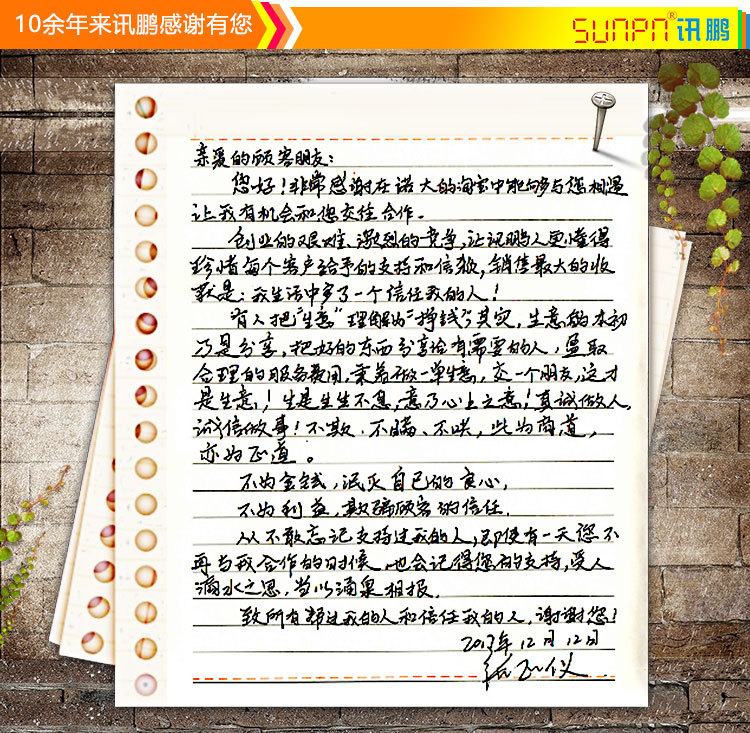 10余年来讯鹏感谢有您
SUNPN®讯鹏
亲爱的顾客朋友：
您好！非常感谢在诺大的淘宝中能够与您相遇
让我有机会和您交往合作。
创业的艰难、激烈的竞争，让讯鹏人更懂得
珍惜每个客户给予的支持和信赖，销售最大的收
获是：我生活中多了一个信任我的人！
有人把"生意"理解为"挣钱"，其实，生意的本初
乃是分享，把好的东西分享给有需要的人，盈取
合理的服务费用，秉着做一单生意，交一个朋友，这才
是生意！生是生生不息，意乃心上之意！真诚做人，
诚信做事！不欺、不瞒、不哄，此为商道，
亦为正道。
不为金钱，泯灭自己的良心，
不为利益，欺骗顾客的信任.
从不敢忘记支持过我的人，即使有一天您不
再与我合作的时候，也会记得您的支持，受人
滴水之恩，当以涌泉相报.
致所有帮过我的人和信任我的人，谢谢您！
2013年12月12日